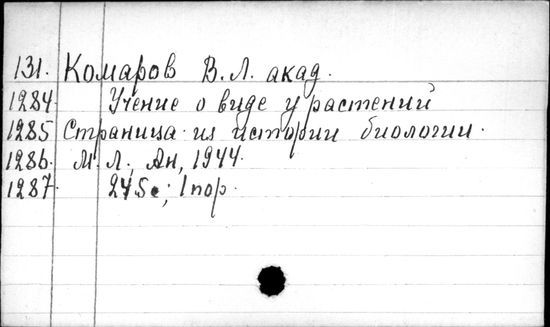 131. Комаров В.Л. акад.
1284. Учение о виде у растений
1285 Страница из истории биологии.
1286. М. Л., Ан, 1944.
1287. 245с; 1 пор.